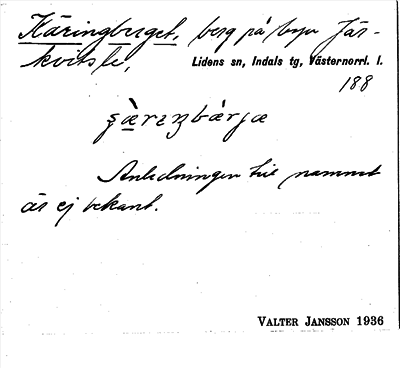 Käringberget, berg på byn Jär-
kvitsle,
Lidens sn, Indals tg, Västernorrl. l.
188
ʂæ̀riŋbærjæ
Anledningen till namnet
är ej bekant.
VALTER JANSSON 1936